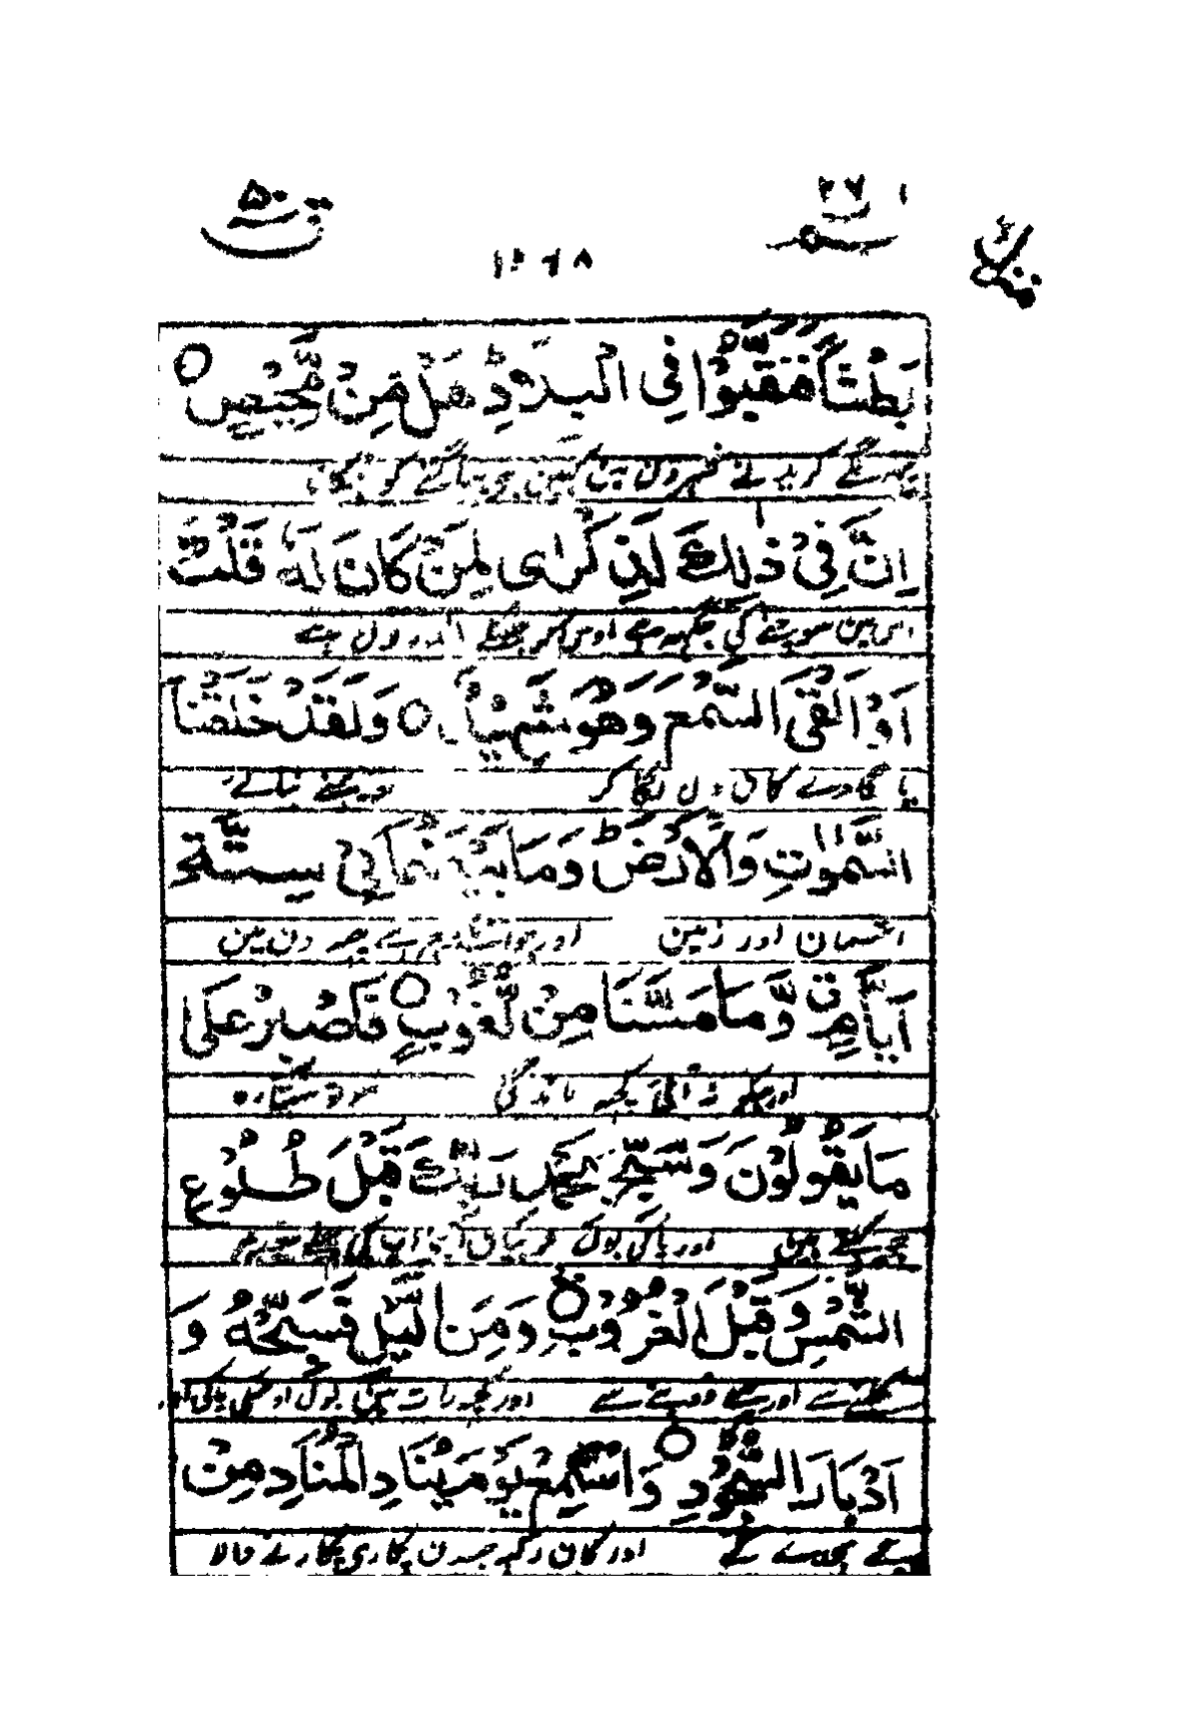 حم ۲۶
ق ۵۰
منزل
۱۲۶۸
بَطْشًا فَنَقَّبُوْا فِی الْبِلَادِ ؕ هَلْ مِنْ مَّحِیْصٍ ○
پھر لگے کریدنے شہروں میں کہیں ہی بھاگنے کو ٹھکانا
اِنَّ فِیْ ذٰلِكَ لَذِكْرٰی لِمَنْ كَانَ لَهٗ قَلْبٌ
اس میں سوچنے کی جگہہ ہے اوس کو جسکے اندر دل ہے
اَوْ اَلْقَی السَّمْعَ وَهُوَ شَهِیْدٌ ○ وَلَقَدْ خَلَقْنَا
یا لگا دے کان دل لگا کر اور ہمنے بنائے
السَّمٰوٰتِ وَالْاَرْضَ وَمَا بَیْنَهُمَا فِیْ سِتَّةِ
آسمان اور زمین اور جو انکے بیچ ہے چھہ دن مین
اَیَّامٍ ۖ وَّمَا مَسَّنَا مِنْ لُّغُوْبٍ ○ فَاصْبِرْ عَلٰی
اور ہمکو نہ آئی کچھہ ماندگی سو تو سہتا رہ
مَا یَقُوْلُوْنَ وَسَبِّحْ بِحَمْدِ رَبِّكَ قَبْلَ طُلُوْعِ
جو کہتے ہین اور پاکی بول خوبیان اپنے رب کی پہلے سورج
الشَّمْسِ وَقَبْلَ الْغُرُوْبِ ○ وَمِنَ الَّیْلِ فَسَبِّحْهُ وَ
نکلنے سے اور پہلے ڈوبنے سے اور کچھہ رات مین بول اوسکی پاکی اور
اَدْبَارَ السُّجُوْدِ ○ وَاسْتَمِعْ یَوْمَ یُنَادِ الْمُنَادِ مِنْ
پیچھے سجدے کے اور کان رکھہ جسدن پکارے پکارنے والا